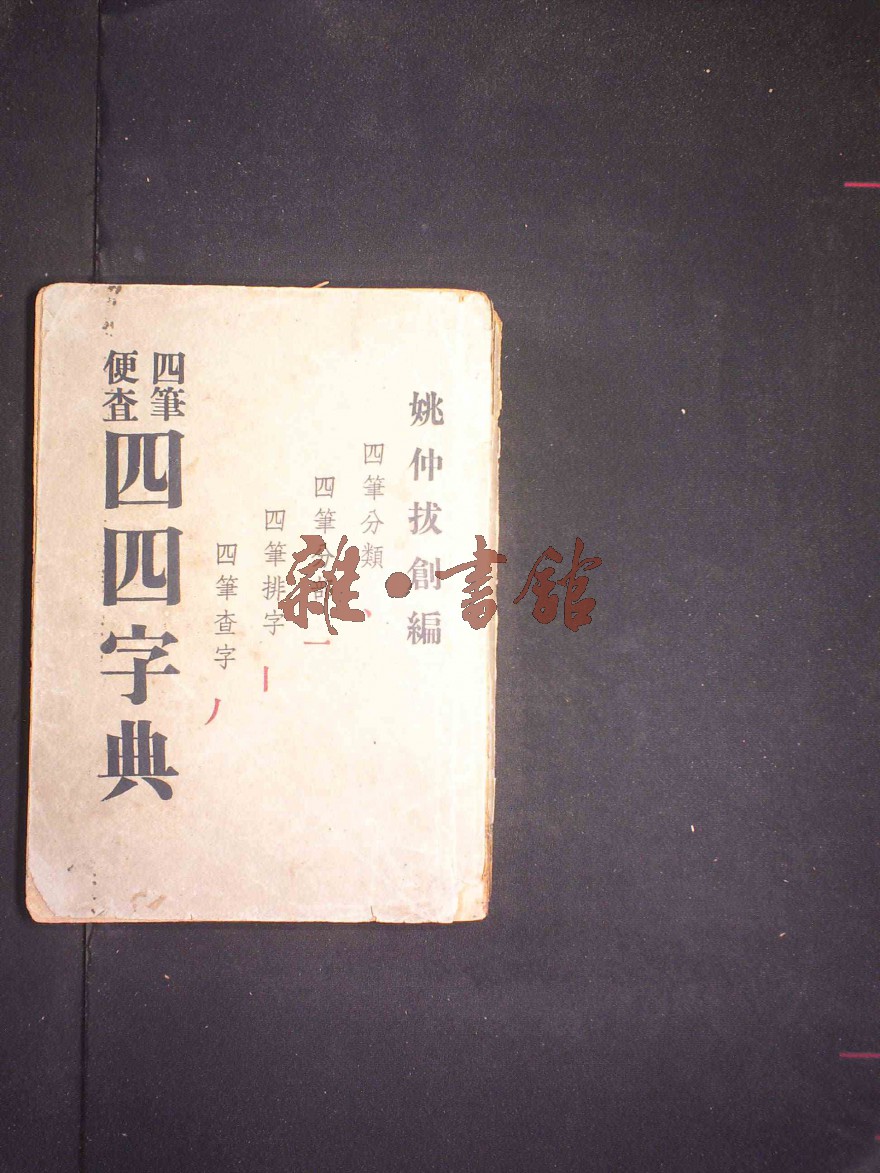 姚仲拔創編
四筆分類
、
四筆分部
一
四筆排字
丨
四筆查字
丿
四筆
便查
四四字典
雜·書館